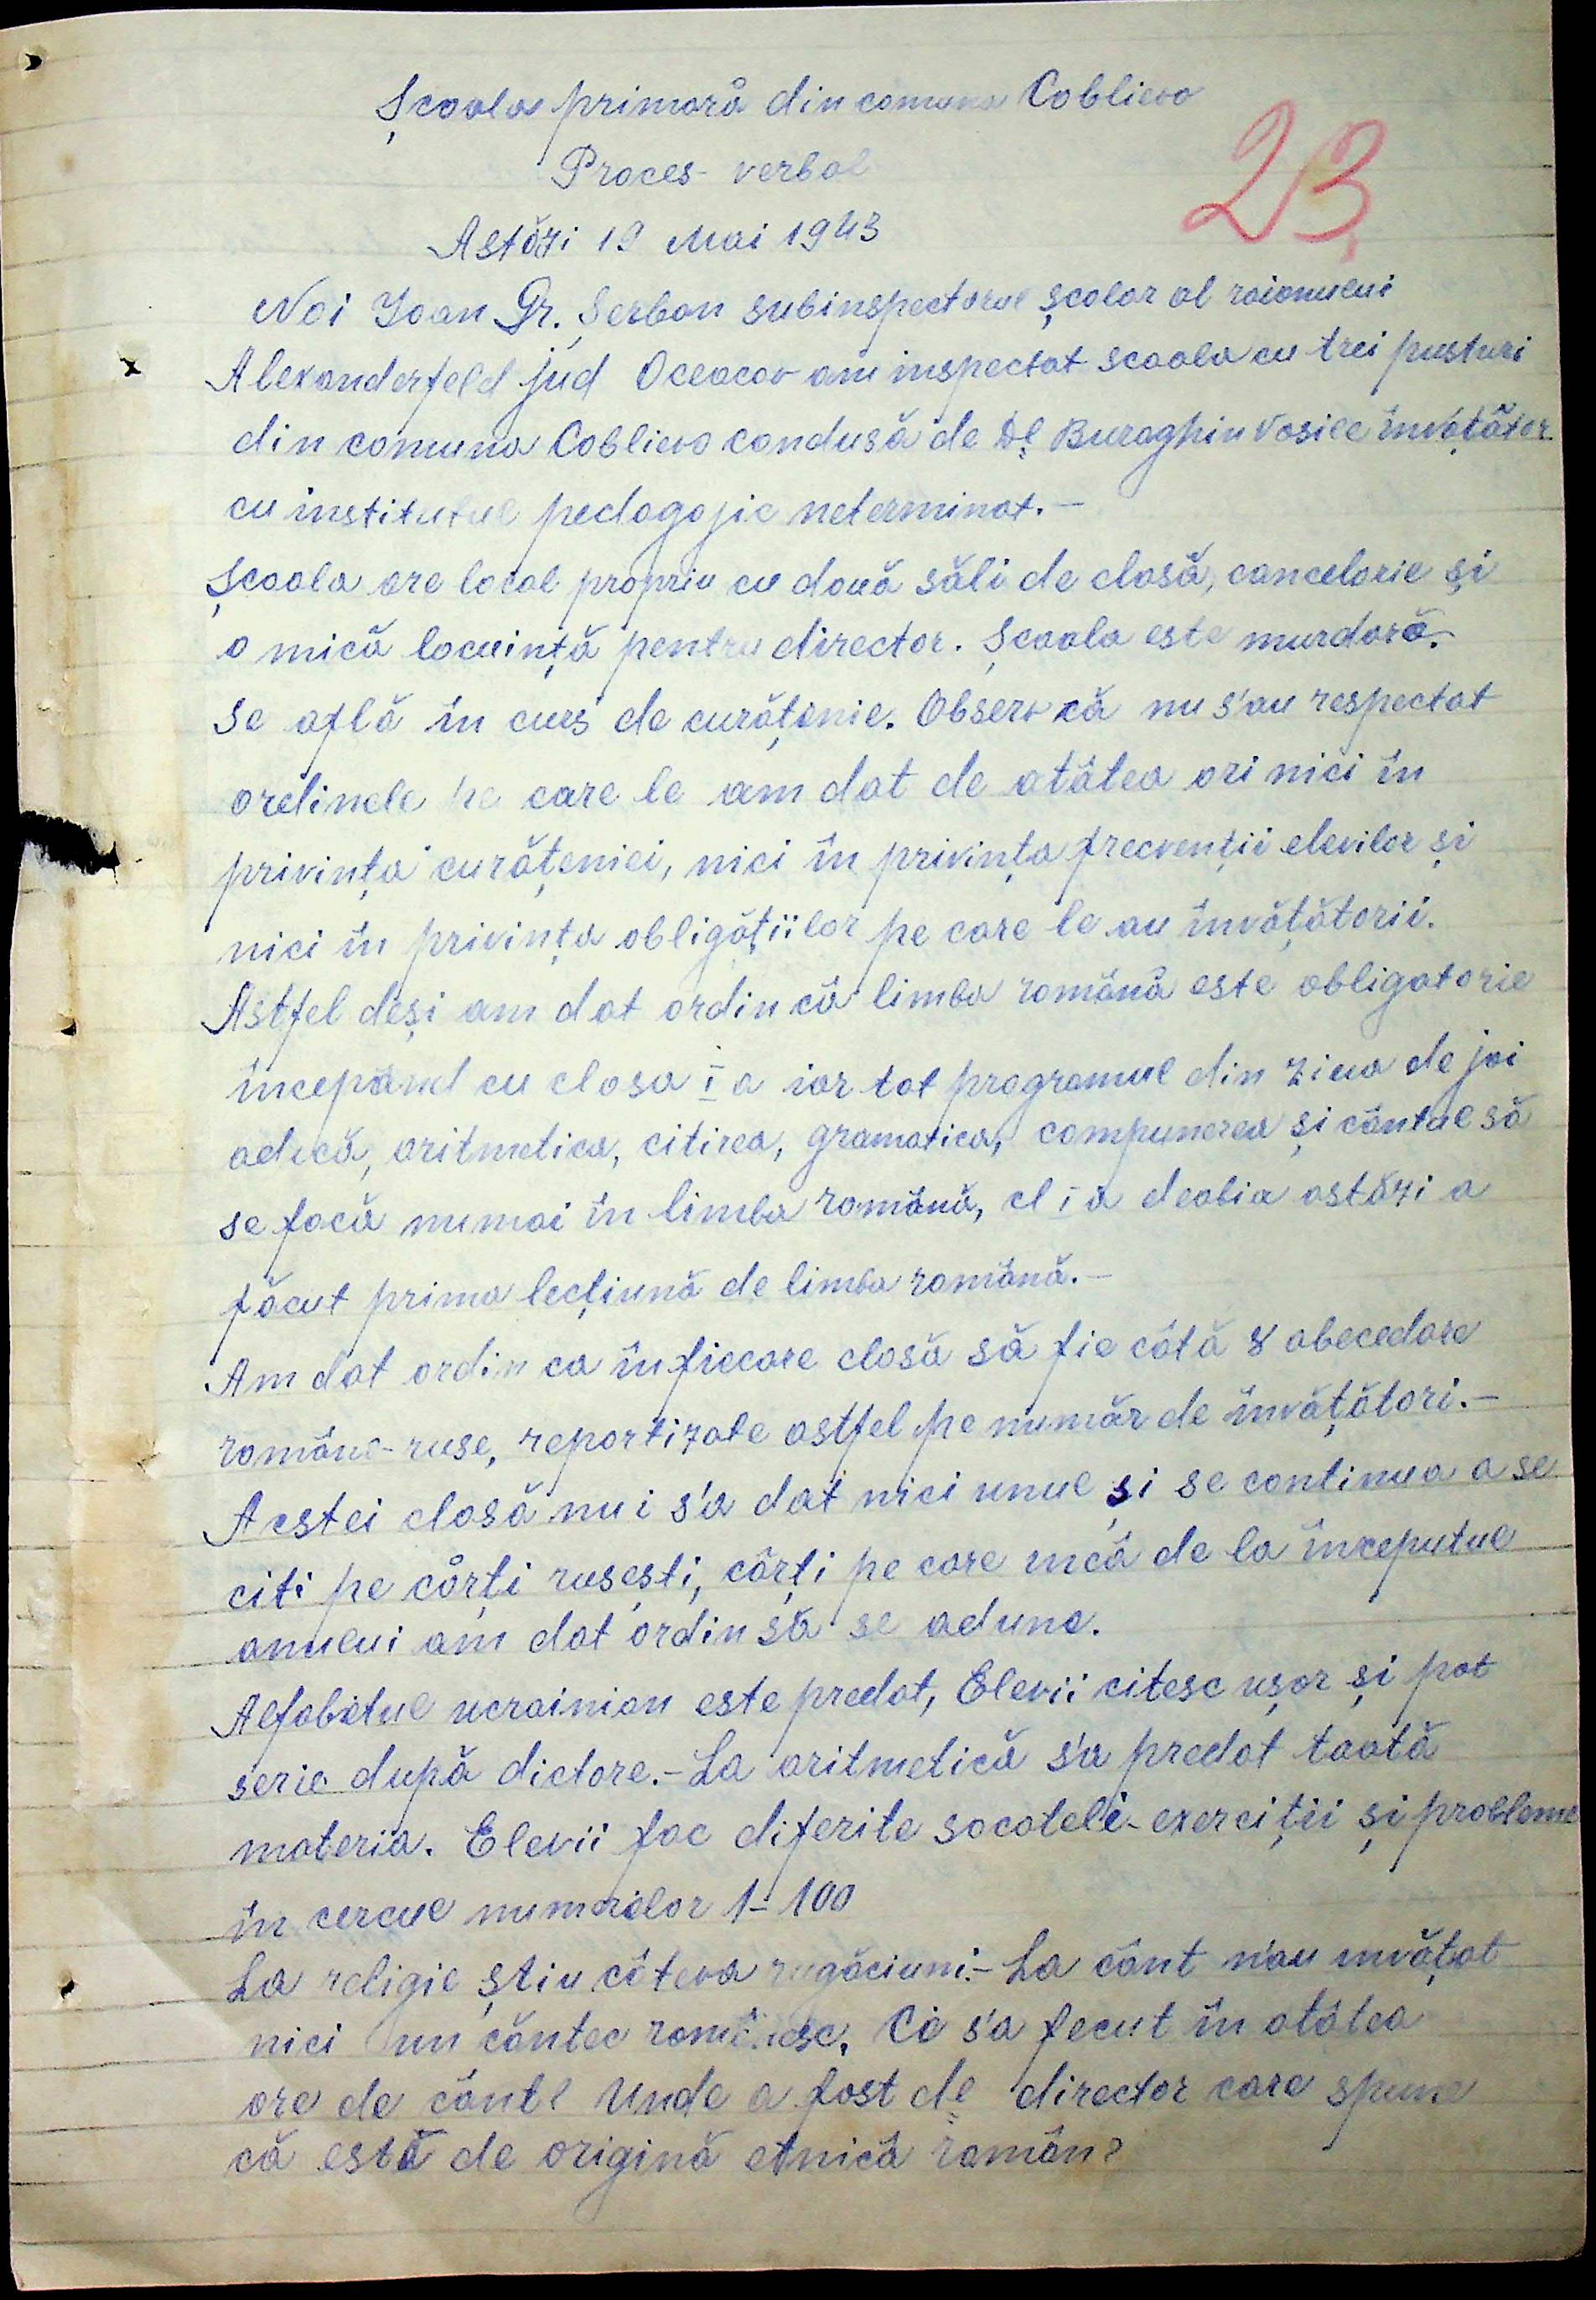 Școala primară din comuna Coblievo
23
Proces-verbal
Astăzi 19 Mai 1943
Noi Ioan Gr. Șerban subinspectorul școlar al raionului
x
Alexanderfeld jud Oceacov am inspectat scoala cu trei posturi
din comuna Coblievo condusă de Dl Buraghin Vasile învățător
cu institutul pedagogic neterminat.-
Școala are local propriu cu două săli de clasă, cancelarie și
o mică locuință pentru director. Școala este murdară.
Se află în curs de curățenie. Observ că nu s'au respectat
ordinele pe care le am dat de atâtea ori nici în
privința curățeniei, nici în privința frecvenții elevilor și
nici în privința obligațiilor pe care le au învățătorii.
Astfel deși am dat ordin că limba română este obligatorie
începând cu clasa I a iar tot programul din ziua de joi
adică, aritmetica, citirea, gramatica, compunerea și cântul să
se facă numai în limba română, cl I a deabia astăzi a
făcut prima lecțiună de limba română.-
Am dat ordin ca în fiecare clasă să fie câtă 8 abecedare
româno-ruse, repartizate astfel pe număr de învățători.-
Acstei clasă nu i s'a dat nici unul și se continua a se
citi pe cărți rusești, cărți pe care incă de la începutul
anului am dat ordin să se adune.
Alfabetul ucrainian este predat, Elevii citesc ușor și pot
serie după dictare.- La aritmetică s'a predat toată
materia. Elevii fac diferite socoteli-exerciții și probleme
în cercul numerilor 1-100
La religie știu câteva rugăciuni.- La cânt n'au învățat
nici un cântec românesc. Ce s'a fecut în atâtea
ore de cânt? Unde a fost dl director care spune
că este de origină etnică român?